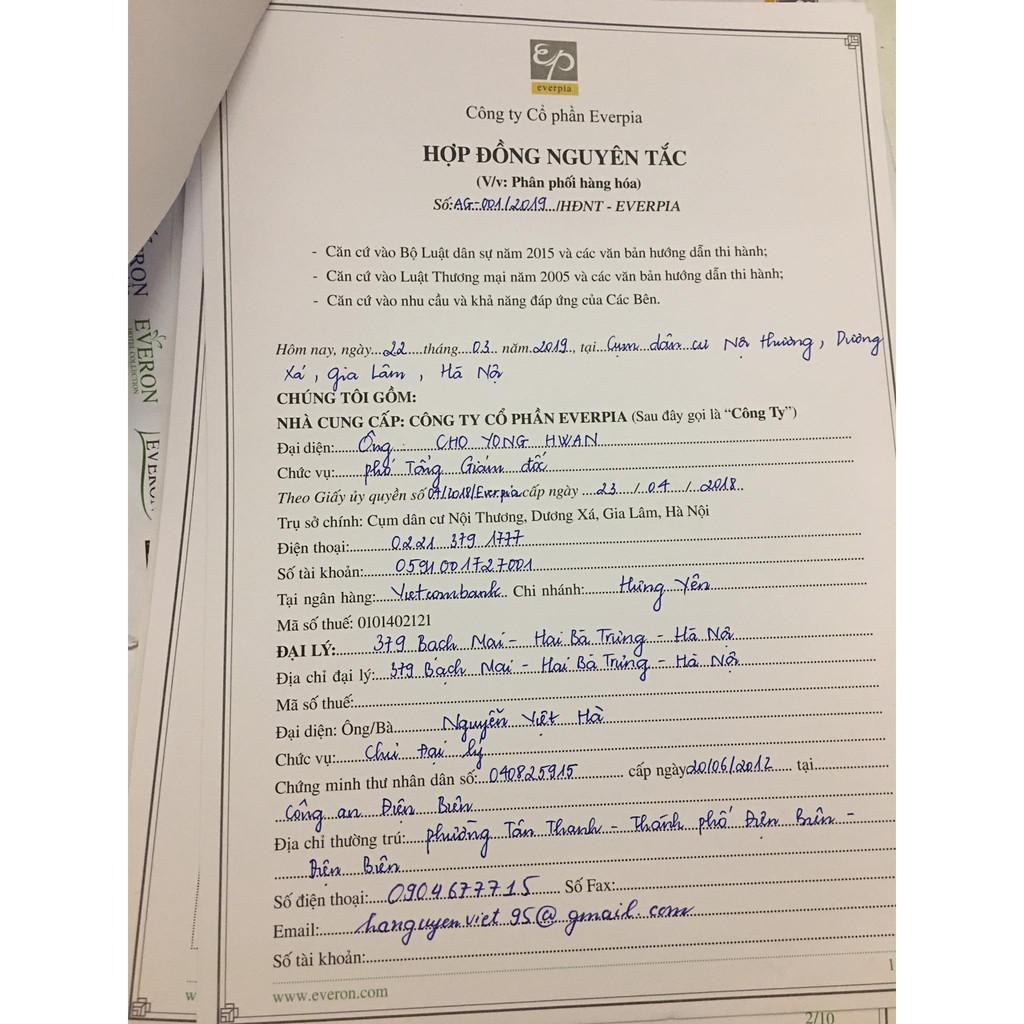 EP
everpia
Công ty Cổ phần Everpia
HỢP ĐỒNG NGUYÊN TẮC
(V/v: Phân phối hàng hóa)
Số:AG-001/2019.../HĐNT - EVERPIA
- Căn cứ vào Bộ Luật dân sự năm 2015 và các văn bản hướng dẫn thi hành;
- Căn cứ vào Luật Thương mại năm 2005 và các văn bản hướng dẫn thi hành;
- Căn cứ vào nhu cầu và khả năng đáp ứng của Các Bên.
Hôm nay, ngày...22....tháng...03.. năm.2019., tại...Cụm dân cư Nội thương, Dương
Xá, Gia Lâm, Hà Nội
CHÚNG TÔI GỒM:
NHÀ CUNG CẤP: CÔNG TY CỔ PHẦN EVERPIA (Sau đây gọi là “Công Ty”)
Đại diện:....Ông CHO YONG HWAN
Chức vụ:....phó Tổng Giám đốc
Theo Giấy ủy quyền số 04/2018/Everpia cấp ngày ...23.../04.../...2018..
Trụ sở chính: Cụm dân cư Nội Thương, Dương Xá, Gia Lâm, Hà Nội
Điện thoại:....0221 379 1777
Số tài khoản:....0591001727001
Tại ngân hàng:...Vietcombank.. Chi nhánh:....Hưng Yên
Mã số thuế: 0101402121
ĐẠI LÝ:....379 Bạch Mai - Hai Bà Trưng - Hà Nội
Địa chỉ đại lý:...379 Bạch Mai - Hai Bà Trưng - Hà Nội
Mã số thuế:....
Đại diện: Ông/Bà....Nguyễn Việt Hà
Chức vụ:....Chủ Đại lý
Chứng minh thư nhân dân số:..040825915.... cấp ngày20/06/2012.... tại....
Công an Điện Biên
Địa chỉ thường trú:...phường Tân Thanh - Thành phố Điện Biên -
Điện Biên
Số điện thoại:...0904677715.... Số Fax:....
Email:....hanguyenviet95@gmail.com
Số tài khoản:....
1
www.everon.com
2/10
EVERON
HOTEL COLLECTION
RON
EVERON
w